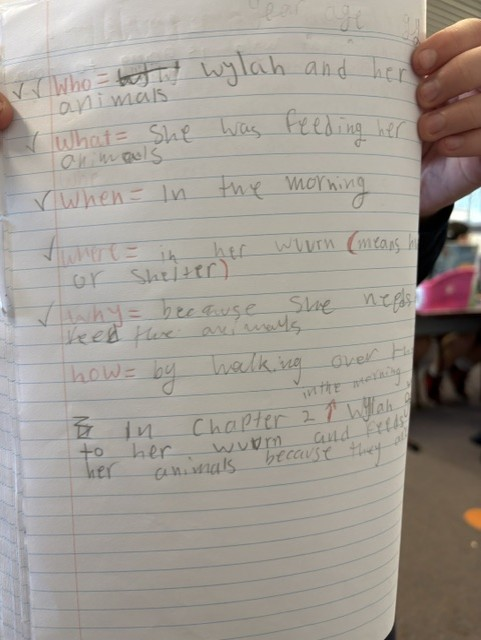 year age
Who = Wylah and her
animals
What = She was feeding her
animals
When = In the morning
where = in her wuurn (means
or shelter)
Why = because She needs
feed the animals
how = by walking over
in the morning
In Chapter 2 ↑ Wylah
to her wuurn and feeds
her animals because they